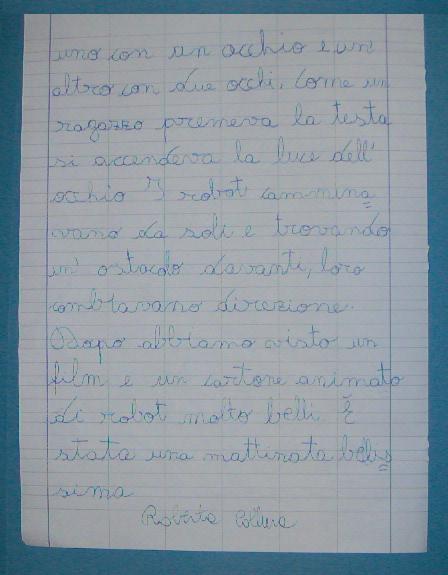 uno con un occhio e un
altro con due occhi, come un
ragazzo premeva la testa
si accendeva la luce dell'
occhio I robot cammina
vano da soli e trovando
un' ostacolo davanti, loro
cambiavano direzione.
Dopo abbiamo visto un
film e un cartone animato
di robot molto belli. È
stata una mattinata bellis
sima
Roberta